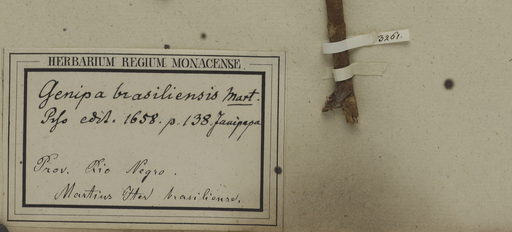 HERBARIUM REGIUM MONACENSE.
Genipa brasiliensis Mart.
Piso edit. 1658. p. 138. Janipapa
Prov. Rio Negro.
Martius Iter brasiliense.
3261.